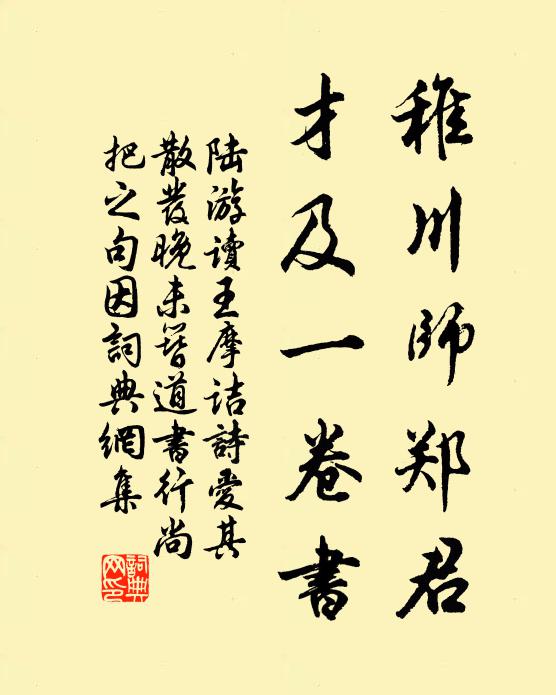 稚川師郑君
才及一卷書
陆游讀王摩詰詩愛其
散發晚未簪道書行尚
把之句因詞典網集
詞典網印